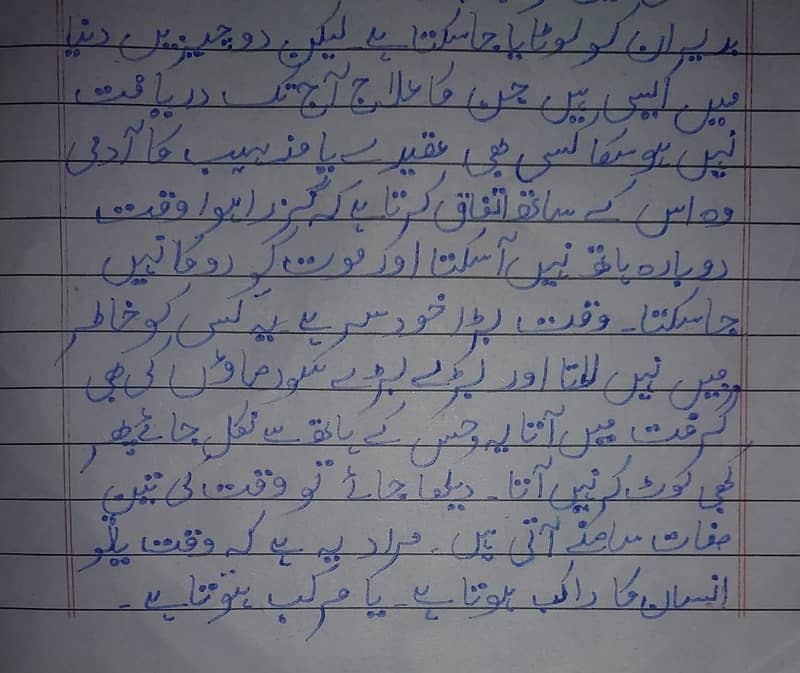 بدیر ان کو لوٹایا جاسکتا ہے لیکن دو چیزیں دنیا
میں ایسی ہیں جن کا علاج آج تک دریافت
نہیں ہوسکا کسی بھی عقیدے یا مذہب کا آدمی
وہ اس کے ساتھ اتفاق کرتا ہے کہ گزرا ہوا وقت
دوبارہ ہاتھ نہیں آسکتا اور موت کو روکا نہیں
جاسکتا۔ وقت بڑا خود سر ہے یہ کسی کو خاطر
میں نہیں لاتا اور بڑے بڑے سورماؤں کی بھی
گرفت میں آتا یہ جس کے ہاتھ سے نکل جائے پھر
کبھی لوٹ کر نہیں آتا۔ دیکھا جائے تو وقت کی تین
صفات سامنے آتی ہیں۔ مراد یہ ہے کہ وقت
انسان کا راکب ہوتا ہے۔ یا مرکب ہوتا ہے۔